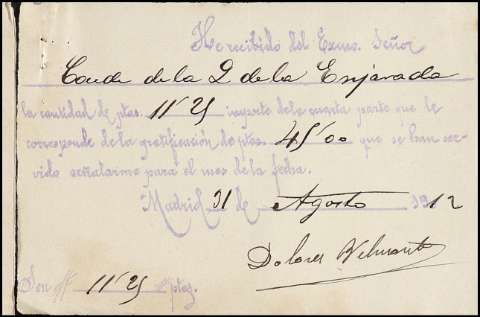 He recibido del Excmo. Señor
Conde de la Q de la Enjarada
la cantidad de ptas. 11'25 importe de la cuarta parte que le
corresponde de la gratificación de ptas. 45'00 que se han ser-
vido señalarme para el mes de la fecha.
Madrid 31 de Agosto 1912
Dolores
Son 11'25 ptas.